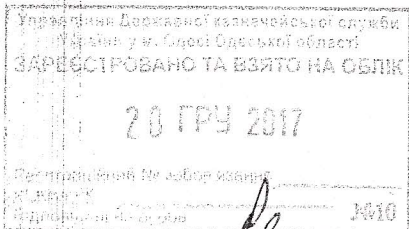 Управління Державної казначейської служби
України у м. Одесі Одеської області
ЗАРЕЄСТРОВАНО ТА ВЗЯТО НА ОБЛІК
20 ГРУ 2017
Реєстраційний №
№10